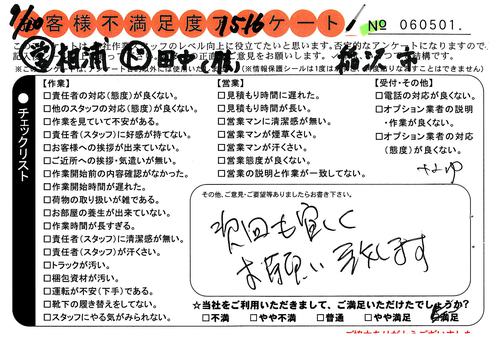 お客様不満足度アンケート!
7/20
1516
№ 060501.
相浦 田中
【作業】
□責任者の対応(態度)が良くない。
□他のスタッフの対応(態度)が良くない。
□作業を見ていて不安がある。
□責任者(スタッフ)に好感が持てない。
□お客様への挨拶が出来ていない。
□ご近所への挨拶・気遣いが無い。
□作業開始前の内容確認がなかった。
□作業開始時間が遅れた。
□荷物の取り扱いが雑である。
□お部屋の養生が出来ていない。
□作業時間が長すぎる。
□責任者(スタッフ)に清潔感が無い。
□責任者(スタッフ)が汗くさい。
□トラックが汚い。
□梱包資材が汚い。
□運転が不安(下手)である。
□靴下の履き替えをしてない。
□スタッフにやる気がみられない。
【営業】
□見積もり時間に遅れた。
□見積もり時間が長い。
□営業マンに清潔感が無い。
□営業マンが煙草くさい。
□営業マンが汗くさい。
□営業態度が良くない。
□営業の説明と作業が一致してない。
【受付・その他】
□電話の対応が良くない。
□オプション業者の説明
・作業が良くない。
□オプション業者の対応
(態度)が良くない。
チェックリスト
その他、ご意見・ご要望等ありましたらお書き下さい。
次回も宜しく
お願い致します
☆当社をご利用いただきまして、ご満足いただけたでしょうか?
□不満 □やや不満 □普通 □やや満足 □満足